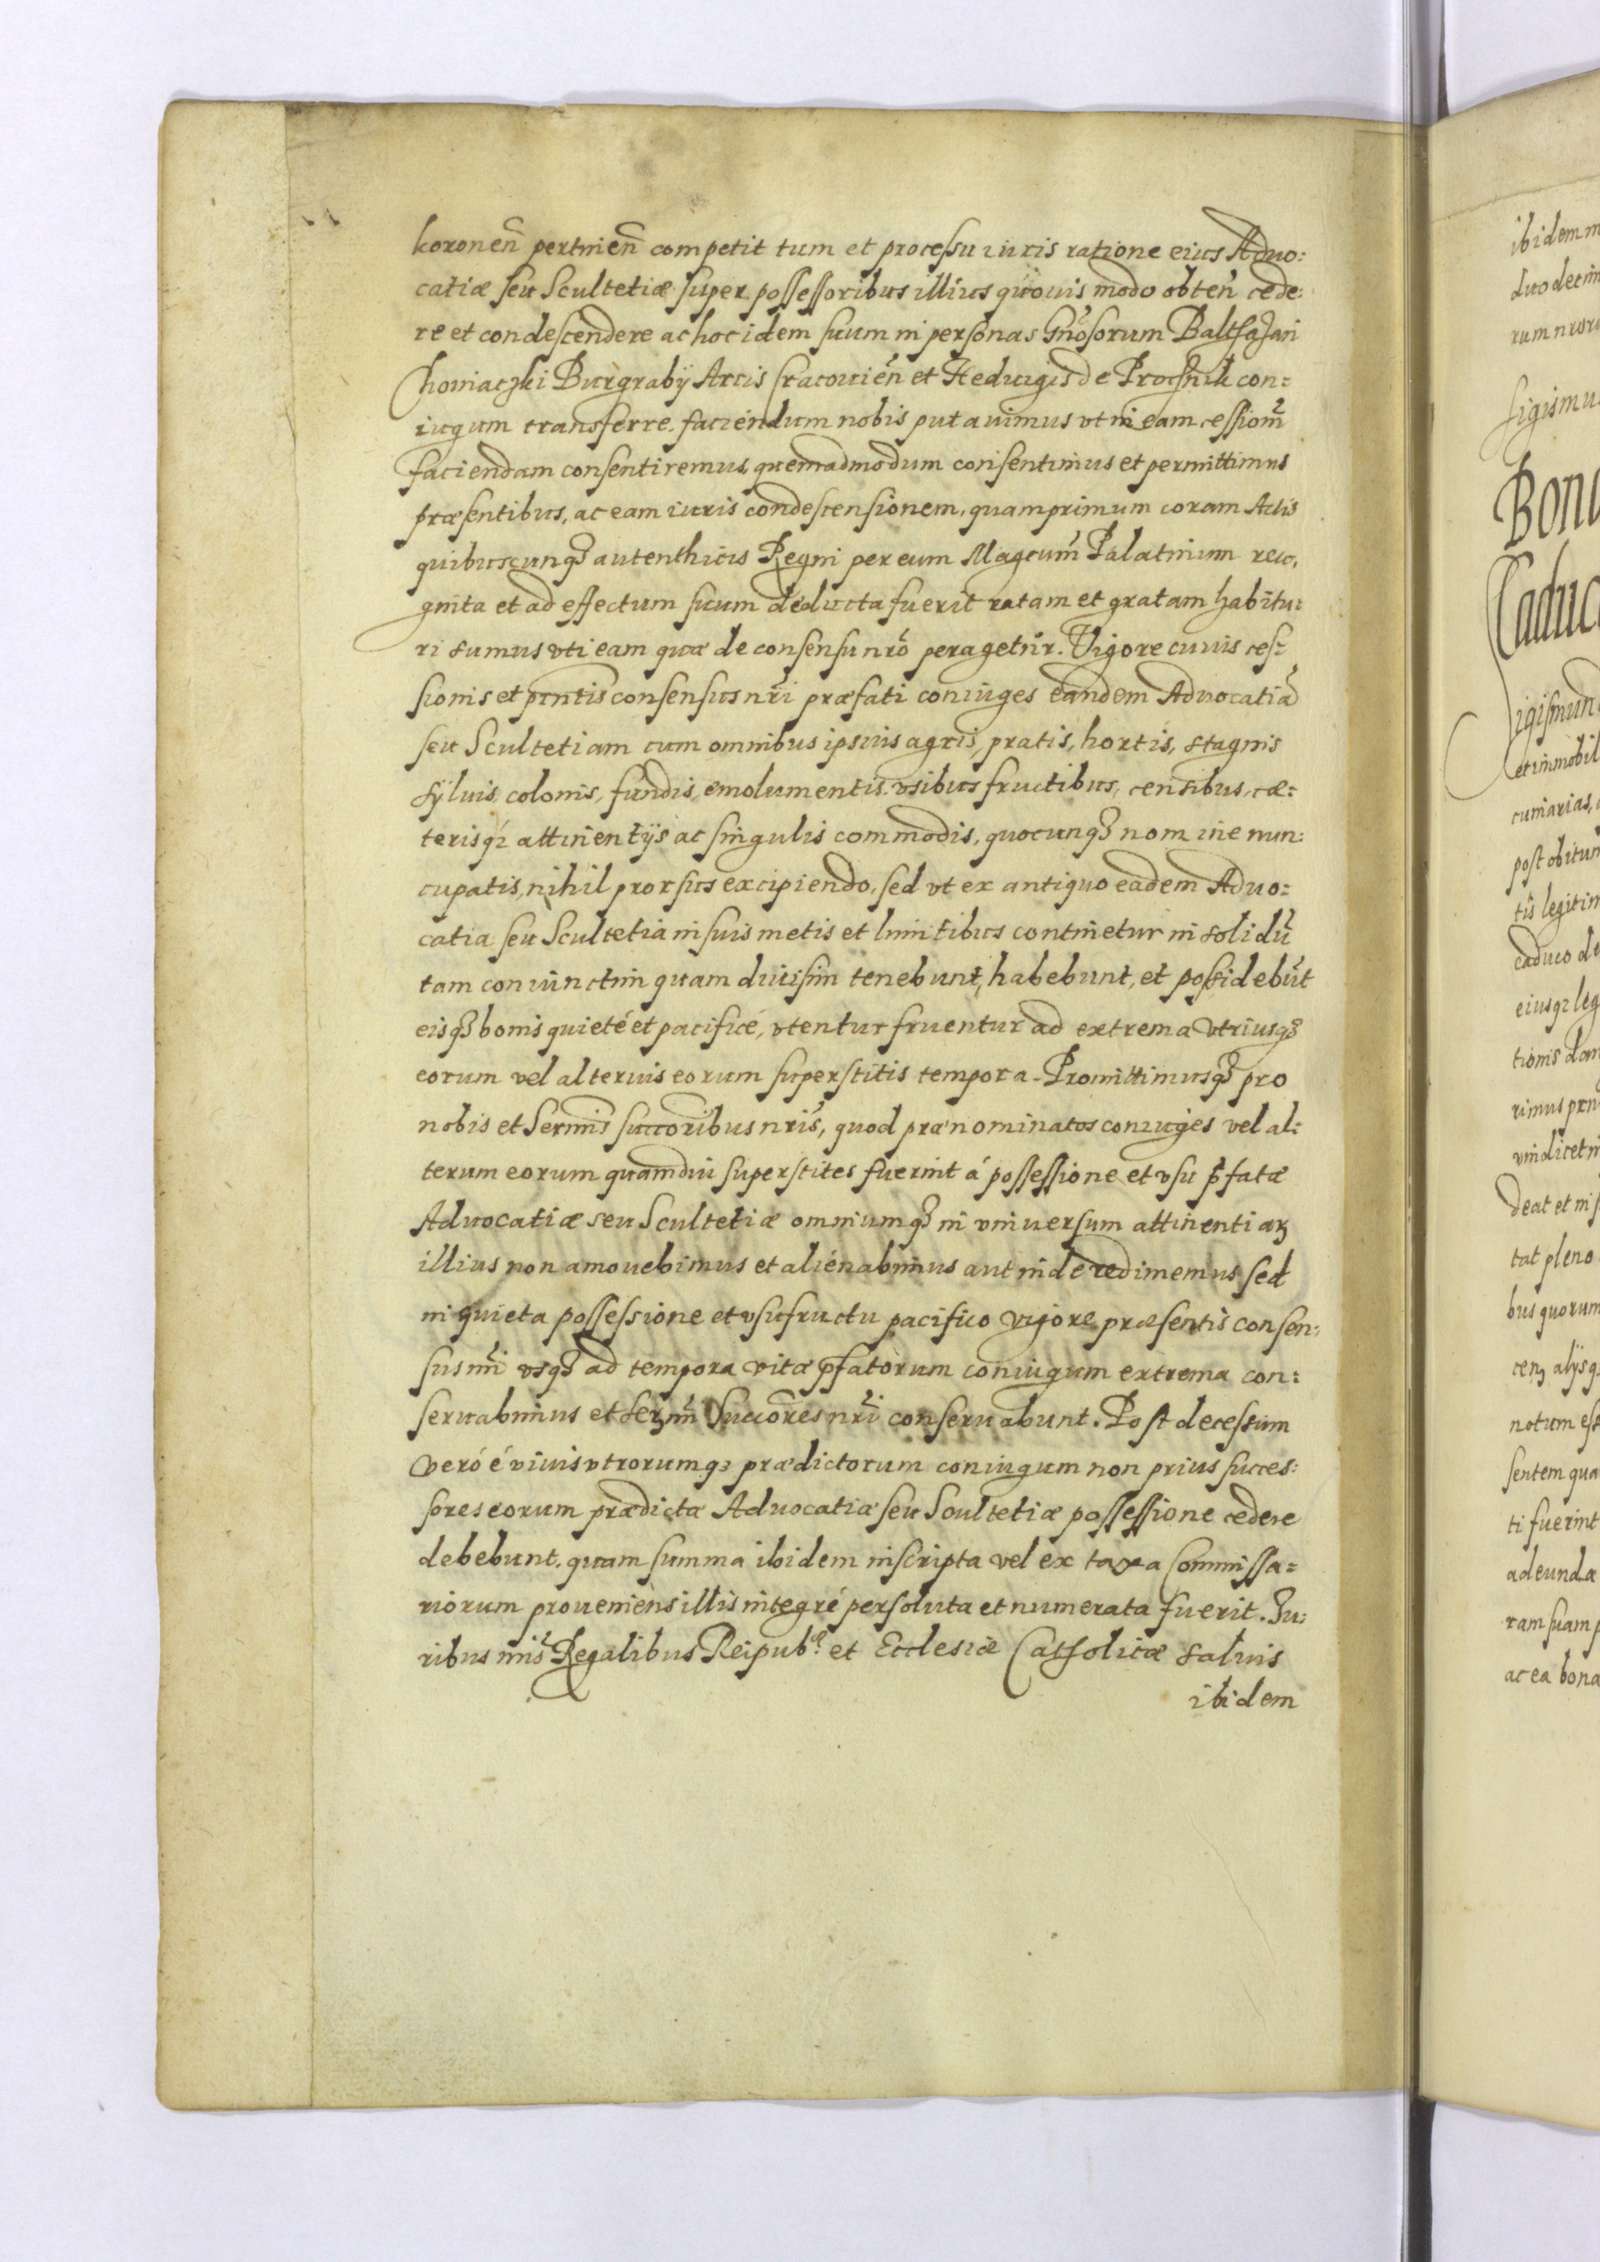 koronen̄ pertinen̄ competit tum et processu iuris ratione eius Aduo:
catiæ seu Scultetiæ super possessoribus illius quouis modo obten̄ cede:
re et condescendere ac hoc idem suum in personas Gn̄osorum Balthasari
Choniaczki Burgrabÿ Arcis Cracouien̄ et Heduigis de Prochnik con:
iugum transferre, faciendum nobis putauimus vt in eam cessionē
faciendam consentiremus quemadmodum consentimus et permittimus
præsentibus, ac eam iuris condescensionem, quamprimum coram Actis
quibuscunqꝫ autenthicis Regni per eum Magcum̄ Palatinum reco,
gnita et ad effectum suum deducta fuerit ratam et gratam habitu:
ri sumus vti eam quæ de consensu nr̄o peragetur. Vigore cuius ces:
sionis et pn̄tis consensus nr̄i præfati coniuges eandem Aduocatiā
seu Scultetiam cum omnibus ipsius agris, pratis, hortis, stagnis
sÿluis, colonis, fundis, emolumentis vsibus fructibus, censibus, cæ:
terisqꝫ attinentÿs ac singulis commodis, quocunqꝫ nomine nun:
cupatis, nihil prorsus excipiendo, sed vt ex antiquo eadem Aduo:
catia seu Scultetia in suis metis et limitibus continetur in solidū
tam coniunctim quam diuisim tenebunt, habebunt, et possidebūt
eisqꝫ bonis quieté et pacificé, vtentur fruentur ad extrema vtriusqꝫ
eorum vel alterius eorum superstitis tempora. Promittimusqꝫ pro
nobis et Sermis̄ succōribus nr̄is, quod prænominatos coniuges vel al:
terum eorum quamdiu superstites fuerint á possessione et vsu p̄fatæ
Aduocatiæ seu Scultetiæ omniumqꝫ in vniuersum attinentiaꝝ
illius non amouebimus et alienabimus aut inde redimemus sed
in quieta possessione et vsufructu pacifico vigore præsentis consen:
sus nr̄i vsqꝫ ad tempora vitæ p̄fatorum coniugum extrema con:
seruabimus et Serm̄i Succōres nr̄i conseruabunt. Post decessum
veró é viuis vtrorumqꝫ prædictorum coniugum non prius succes:
sores eorum prædictæ Aduocatiæ seu Scultetiæ possessione cedere
debebunt, quam summa ibidem inscripta vel ex taxa Commissa:
riorum proueniens illis integré persoluta et numerata fuerit. Iu:
ribus nr̄is Regalibus Reipub: et Ecclesiæ Catholicæ saluis
ibidem